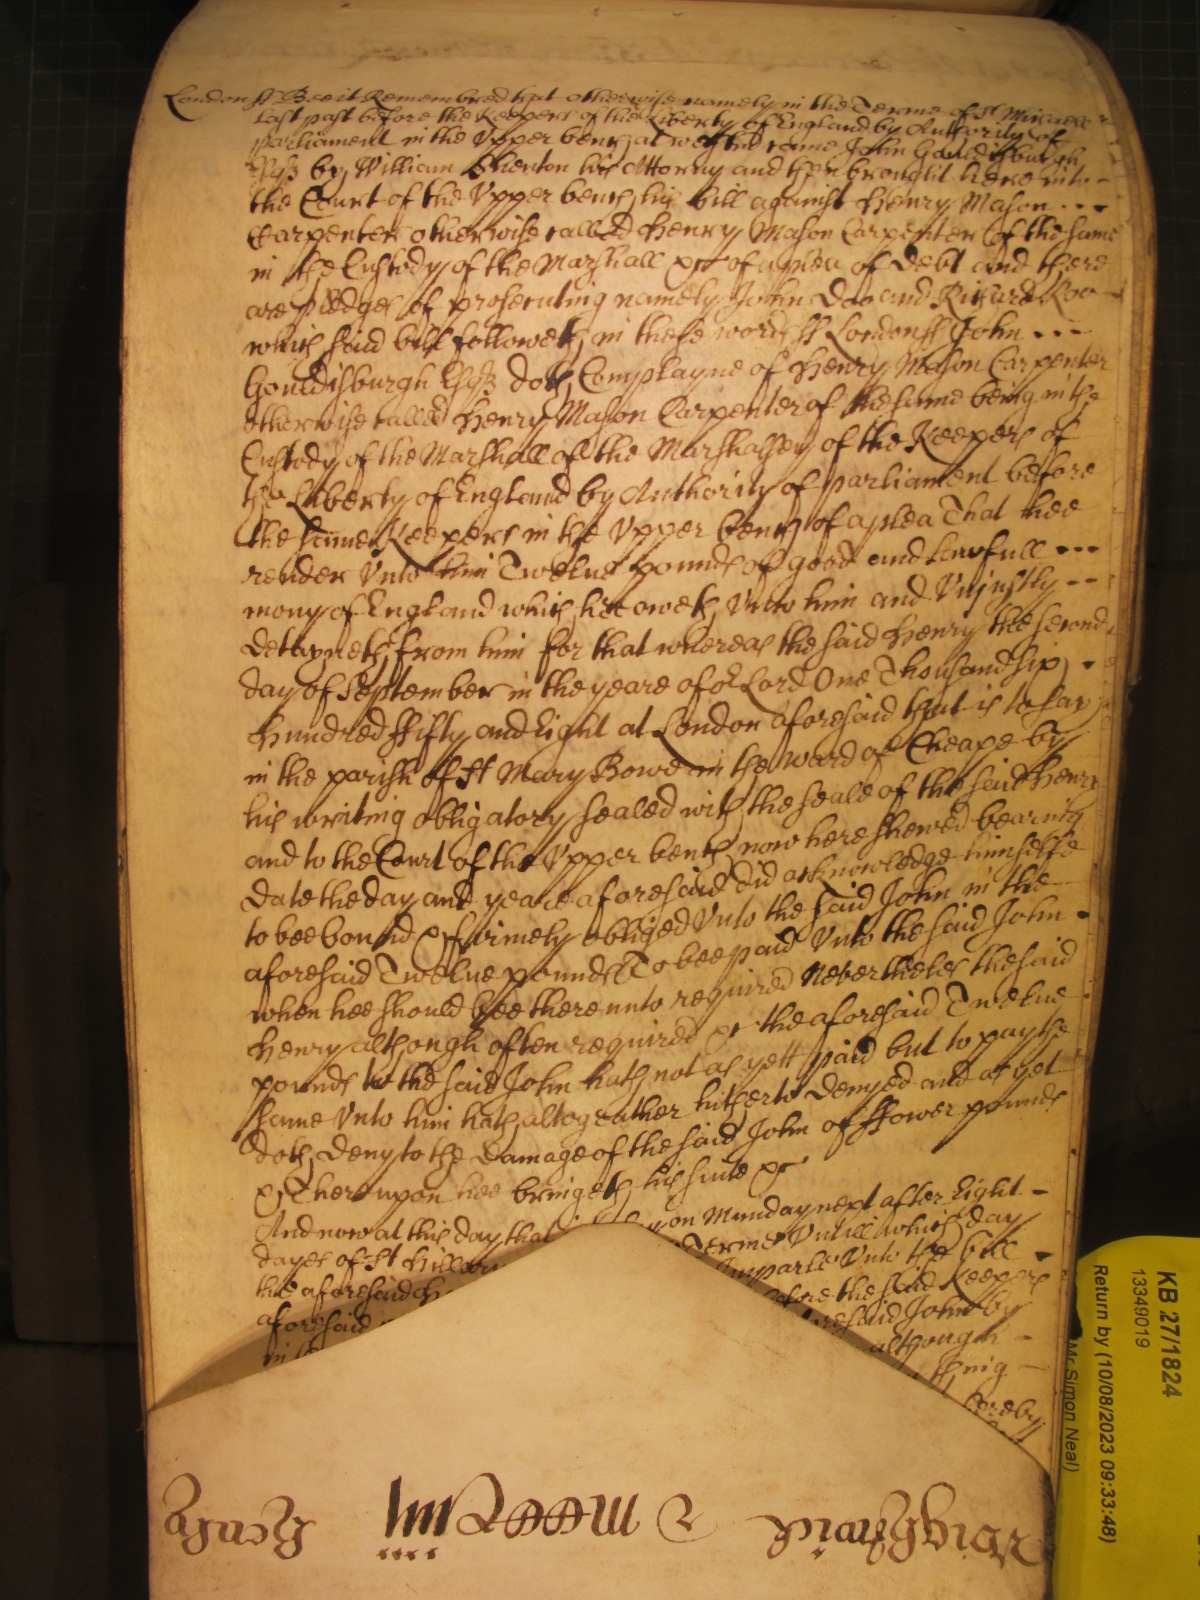 London ss Bee it Remembred that otherwise namely in the Terme of St Michaell
last past before the Keepers of the Liberty of England by Authority of
parliament in the Upper bench at Westm̄ came John Gouldisburgh
Esqr by William Shenton his Attorny and then brought here into
the Court of the Upper bench his bill against Henry Mason
Carpenter otherwise called Henry Mason Carpenter of the same
in the Custody of the Marshall &c of a plea of Debt and there
are pledges of prosecuting namely John Doo and Richard Roo
which said bill followeth in these words ss London ss John
Gouldisburgh Esqr doth Complayne of Henry Mason Carpenter
otherwise called Henry Mason Carpenter of the same being in the
Custody of the Marshall of the Marshalsey of the Keepers of
the Liberty of England by Authority of parliament before
the same Keepers in the Upper bench of a plea That hee
render Unto him Twelve pounds of good and lawfull
mony of England which hee oweth Unto him and Unjustly
detayneth from him for that whereas the said Henry the second
day of September in the yeare of or Lord One Thousand six
hundred ffifty and Eight at London aforesaid that is to say
in the parish of St Mary Bowe in the ward of Cheape by
his writing obligatory sealed with the seale of the said Henry
and to the Court of the Upper bench now here shewed bearing
date the day and yeare aforesaid did acknowledge himselfe
to bee bound & firmely obliged Unto the said John in the
aforesaid Twelve pounds To bee paid Unto the said John
when hee should bee thereunto required Neverthelesse the said
Henry although often required &c the aforesaid Twelve
pounds to the said John hath not as yett paid but to pay the
same Unto him hath altogeather hitherto denyed and as yet
doth deny to the damage of the said John of ffower pounds
& Thereupon hee bringeth his suite &c
And now at this day that on Munday next after Eight
dayes of St Hillary Terme Untill which day
the aforesaid imparle Unto the bill
aforesaid before the said Keepers
in John by
although
thing
hereby
KB 27/1824
13349019
Return by (10/08/2023 09:33:48)
Mr Simon Neal)